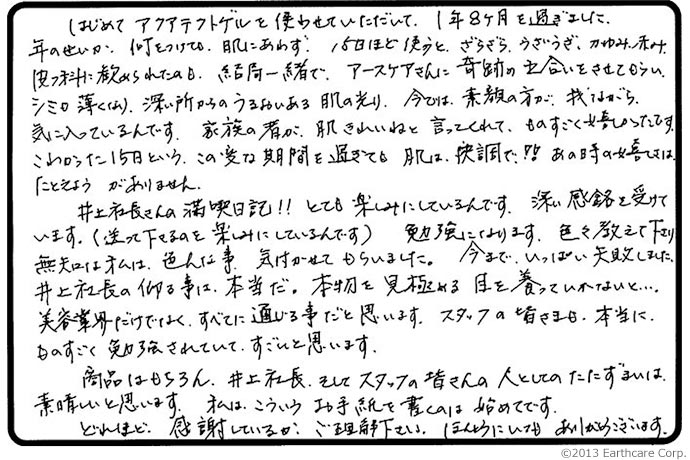 はじめて アクアテクトゲルを使わせていただいて、1年8ヶ月を過ぎました。
年のせいか、何をつけても、肌にあわず、15日ほど使うと、ざらざら、うざうざ、かゆみ、赤み
皮フ科に勧められたのも、結局一緒で、アースケアさんに奇跡の出合いをさせてもらい、
シミも薄くなり、深い所からのうるおいある肌の光り、今では、素顔の方が、我ながら、
気に入っているんです。家族の者が、肌きれいねと言ってくれて、ものすごく嬉しかったです。
こわかった15日という、この変な期間を過ぎても肌は、快調で!! あの時の嬉しさは、
たとえようがありません。
井上社長さんの満喫日記!! とても楽しみにしているんです。深い感銘を受けて
います。(送って下さるのを楽しみにしているんです) 勉強になります。色々教えて下さり
無知な私は、色んな事、気付かせてもらいました。今まで、いっぱい失敗しました。
井上社長の仰る事は、本当だ。本物を見極める目を養っていかないと…。
美容業界だけではなく、すべてに通じる事だと思います。スタッフの皆さまも、本当に、
ものすごく勉強されていて、すごいと思います。
商品はもちろん、井上社長、そしてスタッフの皆さんの人としてのたたずまいは、
素晴しいと思います。私は、こういうお手紙を書くのは始めてです。
どれほど、感謝しているか、ご理解下さい。ほんとうにいつもありがとうございます。
©2013 Earthcare Corp.